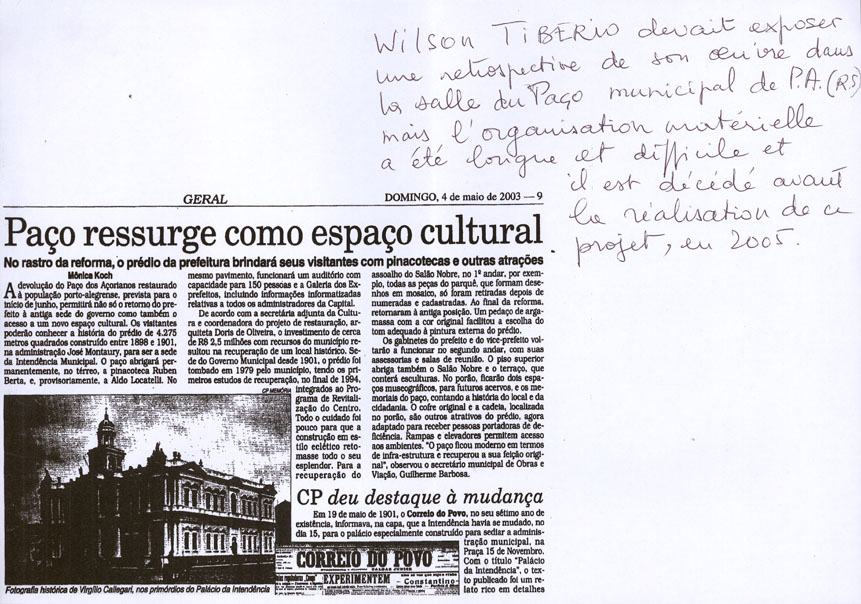 Wilson TIBERIO devait exposer
une retrospective de son œuvre dans
la salle du Paço municipal de P.A. (RS)
mais l'organisation matérielle
a été longue et difficile et
il est décédé avant
la réalisation de ce
projet, en 2005.
GERAL
DOMINGO, 4 de maio de 2003 — 9
Paço ressurge como espaço cultural
No rastro da reforma, o prédio da prefeitura brindará seus visitantes com pinacotecas e outras atrações
Mônica Koch
A devolução do Paço dos Açorianos restaurado
à população porto-alegrense, prevista para o
início de junho, permitirá não só o retorno do pre-
feito à antiga sede do governo como também o
acesso a um novo espaço cultural. Os visitantes
poderão conhecer a história do prédio de 4.275
metros quadrados construído entre 1898 e 1901,
na administração José Montaury, para ser a sede
da Intendência Municipal. O paço abrigará per-
manentemente, no térreo, a pinacoteca Ruben
Berta, e, provisoriamente, a Aldo Locatelli. No
mesmo pavimento, funcionará um auditório com
capacidade para 150 pessoas e a Galeria dos Ex-
prefeitos, incluindo informações informatizadas
relativas a todos os administradores da Capital.
De acordo com a secretária adjunta da Cultu-
ra e coordenadora do projeto de restauração, ar-
quiteta Doris de Oliveira, o investimento de cerca
de R$ 2,5 milhões com recursos do município re-
sultou na recuperação de um local histórico. Se-
de do Governo Municipal desde 1901, o prédio foi
tombado em 1979 pelo município, tendo os pri-
meiros estudos de recuperação, no final de 1994,
integrados ao Pro-
grama de Revitali-
zação do Centro.
Todo o cuidado foi
pouco para que a
construção em es-
tilo eclético reto-
masse todo o seu
esplendor. Para a
recuperação do
CP MEMÓRIA
Fotografia histórica de Virgílio Callegari, nos primórdios do Palácio da Intendência
assoalho do Salão Nobre, no 1º andar, por exem-
plo, todas as peças do parquê, que formam dese-
nhos em mosaico, só foram retiradas depois de
numeradas e cadastradas. Ao final da reforma,
retornaram à antiga posição. Um pedaço de arga-
massa com a cor original facilitou a escolha do
tom adequado à pintura externa do prédio.
Os gabinetes do prefeito e do vice-prefeito vol-
tarão a funcionar no segundo andar, com suas
assessorias e salas de reunião. O piso superior
abriga também o Salão Nobre e o terraço, que
conterá esculturas. No porão, ficarão dois espa-
ços museográficos, para futuros acervos, e os me-
moriais do paço, contando a história do local e da
cidadania. O cofre original e a cadeia, localizada
no porão, são outros atrativos do prédio, agora
adaptado para receber pessoas portadoras de de-
ficiência. Rampas e elevadores permitem acesso
aos ambientes. "O paço ficou moderno em termos
de infra-estrutura e recuperou a sua feição origi-
nal", observou o secretário municipal de Obras e
Viação, Guilherme Barbosa.
CP deu destaque à mudança
Em 19 de maio de 1901, o Correio do Povo, no seu sétimo ano de
existência, informava, na capa, que a Intendência havia se mudado, no
dia 15, para o palácio especialmente construído para sediar a adminis-
tração municipal, na
Praça 15 de Novembro.
Com o título "Palácio
da Intendência", o tex-
to publicado foi um re-
lato rico em detalhes
CORREIO DO POVO
CALDAS JUNIOR
EXPERIMENTEM
Constantino